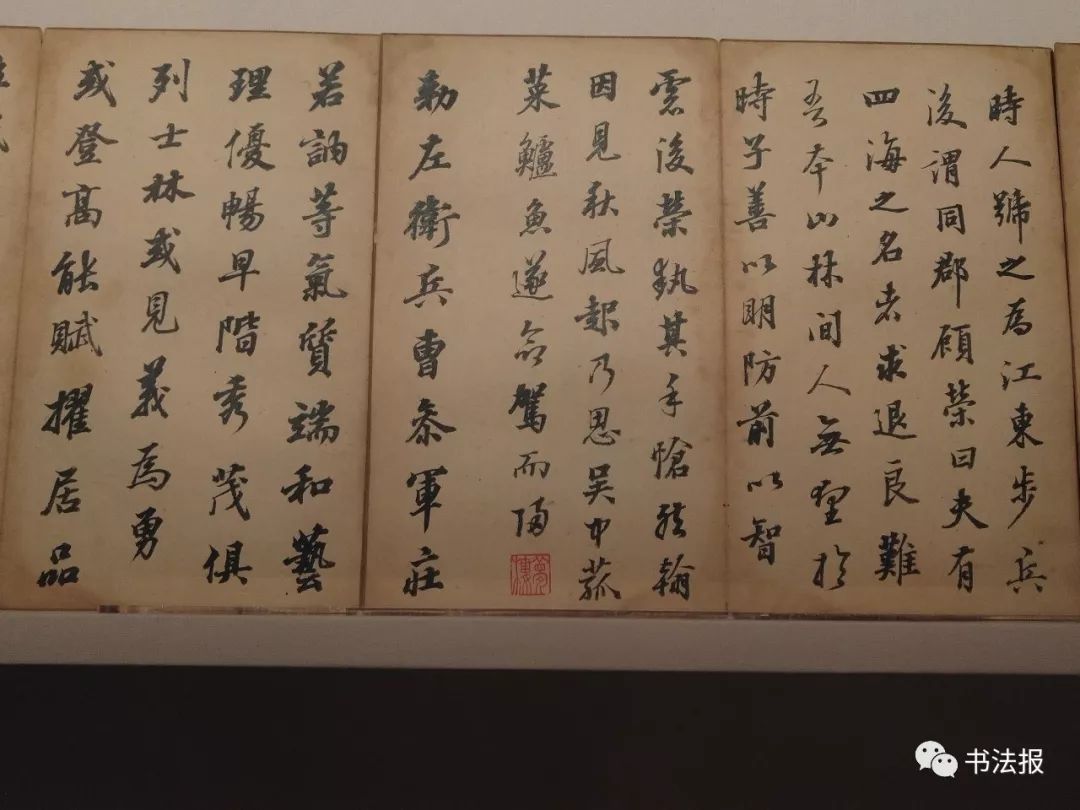 時人號之為江東步兵
後謂同郡顧榮曰夫有
四海之名者求退良難
吾本山林间人無望於
時子善以明防前以智
慮後榮執其手愴然翰
因見秋風起乃思吳中菰
菜鱸魚遂命駕而歸
夢樓
勅左衛兵曹參軍莊
若訥等氣質端和藝
理優暢早階秀茂俱
列士林或見義為勇
或登高能賦擢居品
书法报